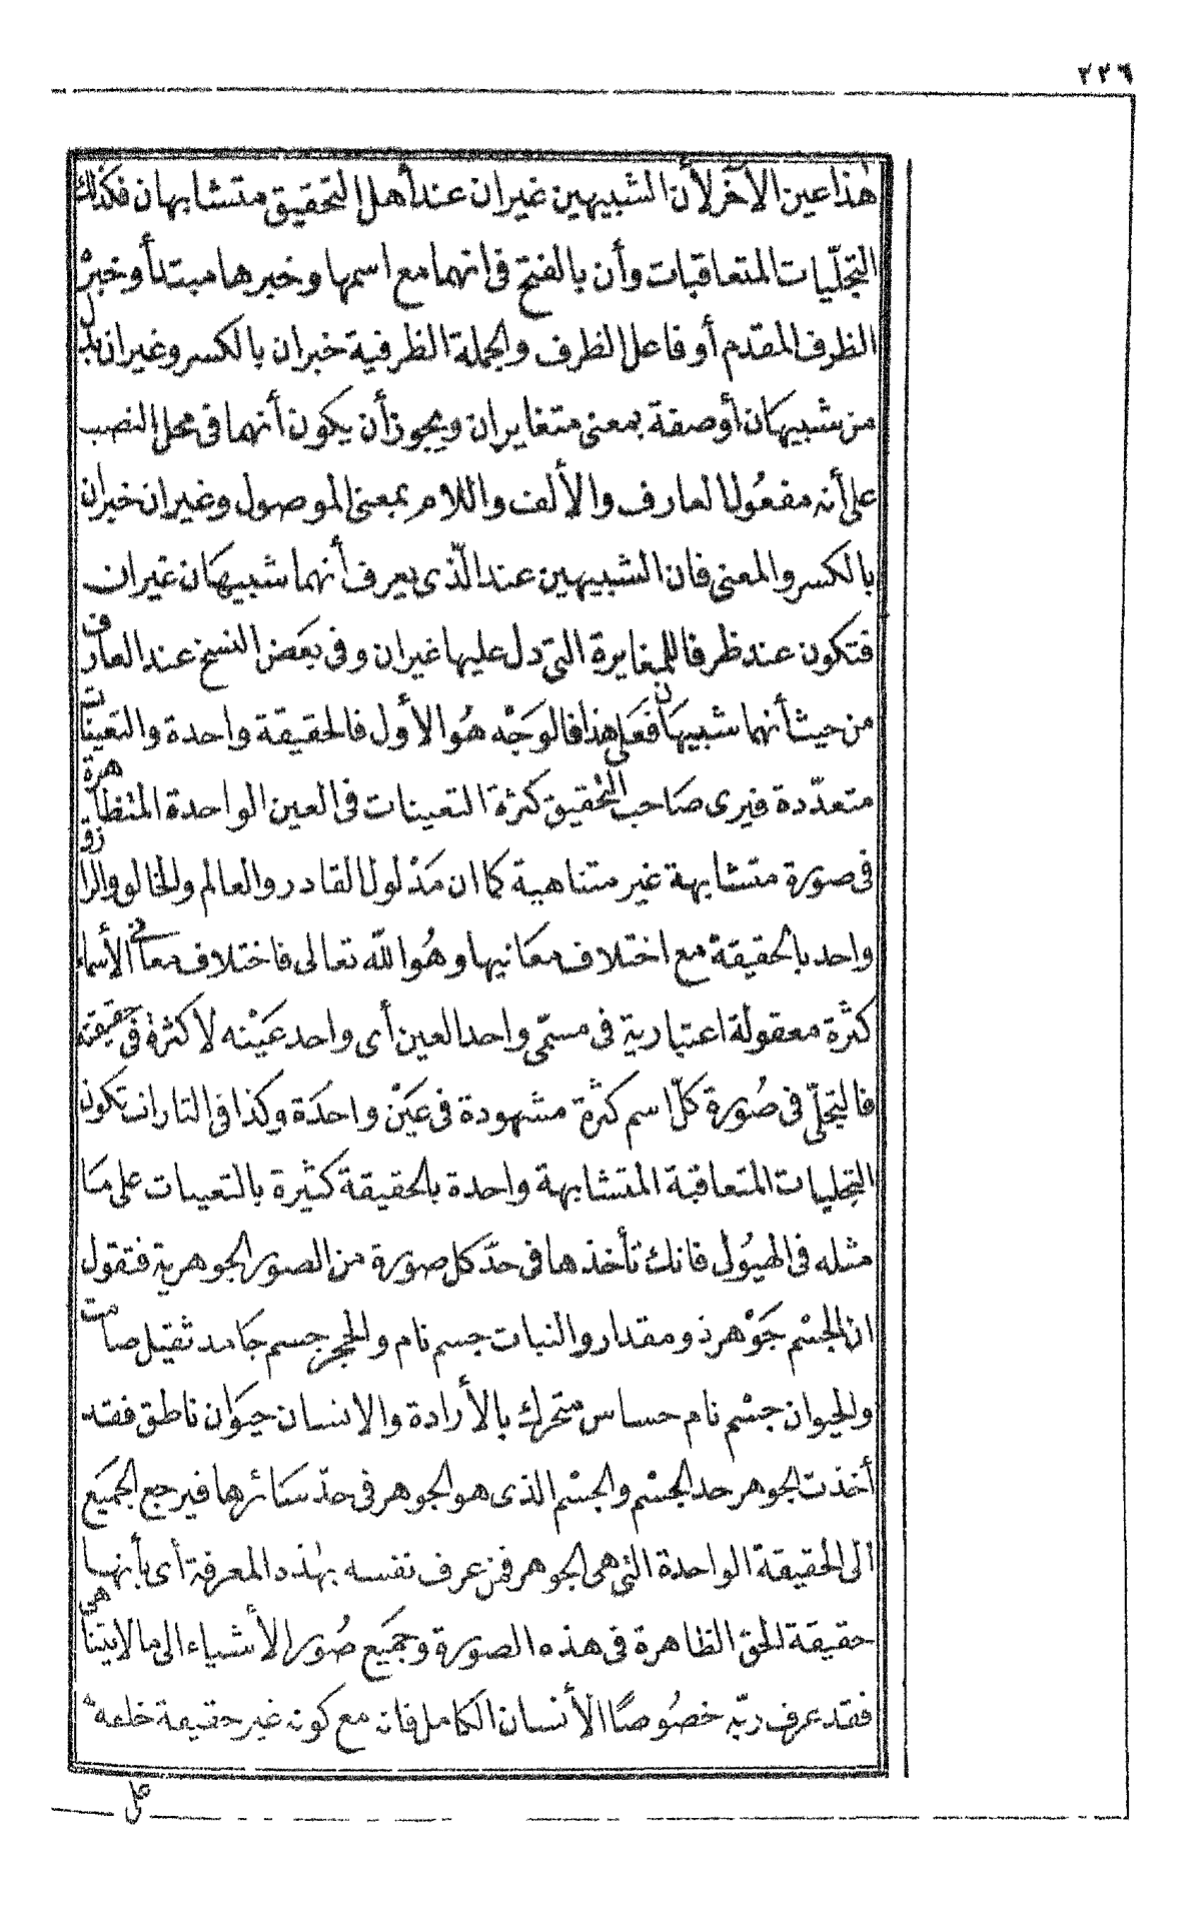 ٢٢٦
هٰذا عين الآخر لأن الشبيهين غيران عند أهل التحقيق متشابهان فكذلك
التجلّيات المتعاقبات وأن بالفتح فى انهما مع اسمها وخبرها مبتدأ وخبرْ
الظرف المقدم أو فاعل الظرف والجملة الظرفية خبران بالكسر وغيران بدل
من شبيهان أو صفة بمعنى متغايران ويجوز أن يكون أنهما فى محل النصب
على أنه مفعُول العارف والألف واللام بمعنى الموصول وغيران خبران
بالكسر والمعنى فان الشبيهين عند الّذى يعرف أنهما شبيهَان غيران
فتكون عند ظرفا للمغايرة التى دل عليها غيران وفى بعَض النسخ عند العارف
من حيث أنهما شبيهَان فعَلى هذا فالوَجْه هُو الأول فالحقيقة واحدة والتعينات
متعدّدة فيرى صَاحب التحْقيق كثرة التعينات فى العين الواحدة المتظاهرة
فى صورة متشابهة غير متناهية كما ان مَدْلول القادر والعالم والخالق والرازق
واحد بالحقيقة مع اختلاف معَانيها وهُو الله تعالى فاختلاف معانى الأسماء
كثرة معقولة اعتبارية فى مسمّى واحد العين أى واحد عَيْنه لا كثرة فى حقيقته
فالتجلّى فى صُورة كلّ اسم كثرة مشهودة فى عَيْن واحدَة وكذا فى التارات تكون
التجليات المتعاقبة المتشابهة واحدة بالحقيقة كثيرة بالتعينات على مَا
مثله فى الهيُولى فانك تأخذها فى حدّ كل صورة من الصور الجوهرية فتقول
ان الجسْم جَوْهر ذو مقدار والنبات جسم نام والحجر جسم جَامد ثقيل صامت
والحيوان جسْم نام حساس متحرك بالأرادة والانسان حيوَان ناطق فقد
أخذت الجوهر حد الجسْم والجسْم الذى هو الجوهر فى حدّ سَائرها فيرجع الجميَع
الى الحقيقة الواحدة التى هى الجوهر فمن عرف نفسه بهٰذه المعرفة أى بأنها
حقيقة الحق الظاهرة فى هذه الصورة وجميَع صُور الأشياء الى ما لا يتناهى
فقد عرف ربّه خصُوصًا الأنسان الكامل فانه مع كونه غير حقيقة خلعه
على